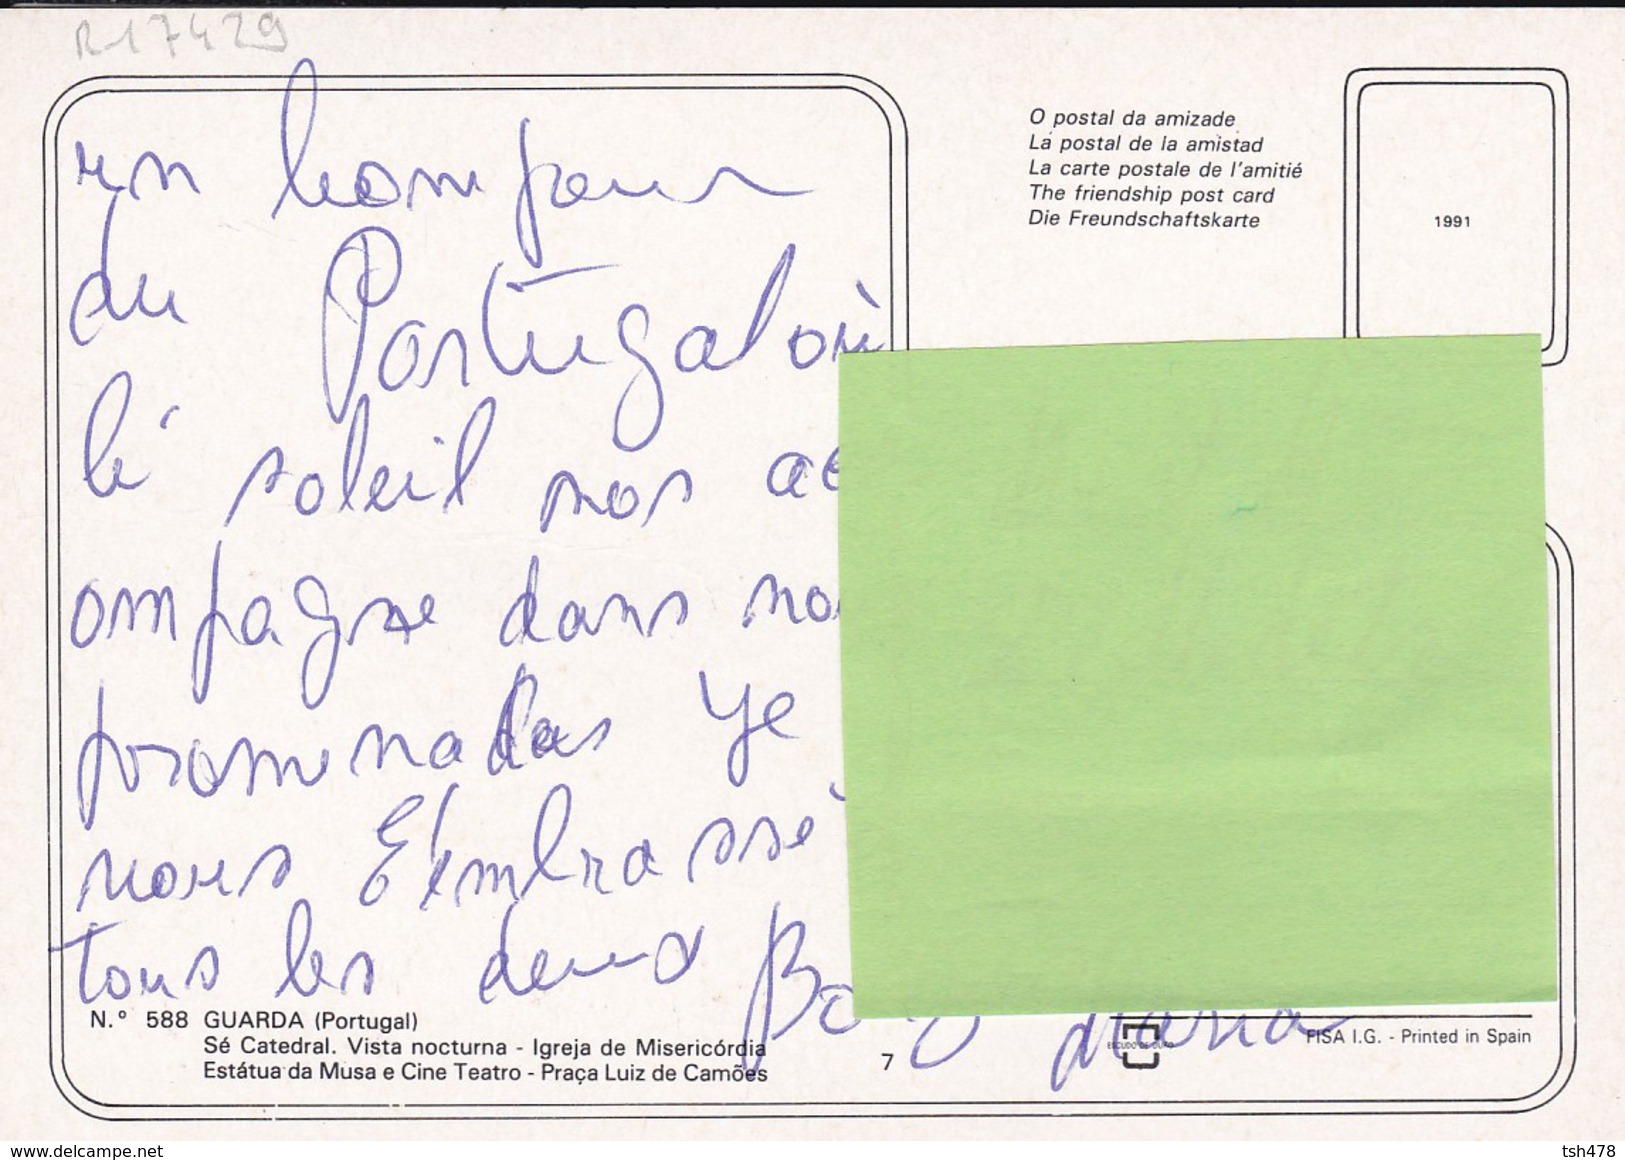 R17429
O postal da amizade
La postal de la amistad
La carte postale de l'amitié
The friendship post card
Die Freundschaftskarte
1991
un bomjour
du Portugal où
lé soleil nos ac
ompagne dans no
promenades ye
nous E'embrassé
tous les deux
Maria
N.º 588 GUARDA (Portugal)
Sé Catedral. Vista nocturna - Igreja de Misericórdia
Estátua da Musa e Cine Teatro - Praça Luiz de Camões
7
ESCUDO DE OURO
FISA I.G. - Printed in Spain
www.delcampe.net
tsh478